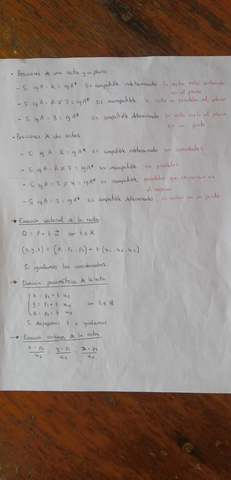 • Posiciones de una recta y un plano
- Si rgA = 2 = rgA* Sis compatible indeterminado la recta está contenida en el plano
- Si rgA = 2 ≠ 3 = rgA* Sis incompatible la recta es paralela al plano
- Si rgA = 3 = rgA* Sis compatible determinado la recta corta al plano en un punto
• Posiciones de dos rectas
- Si rgA = 2 = rgA* Sis compatible indeterminado son coincidentes
- Si rgA = 2 ≠ 3 = rgA* Sis incompatible son paralelas
- Si rgA = 3 ≠ 4 = rgA* Sis incompatible
- Si rgA = 3 = rgA* Sis compatible determinado se cortan en un punto
→ Ecuación vectorial de la recta
Q = P + t u⃗ con t ∈ R
(x, y, z) = (p₁, p₂, p₃) + t (u₁, u₂, u₃)
Si igualamos las coordenadas
→ Ecuación paramétrica de la recta
x = p₁ + t u₁
y = p₂ + t u₂ con t ∈ R
z = p₃ + t u₃
Si despejamos t e igualamos
→ Ecuación continua de la recta
x - p₁ / u₁ = y - p₂ / u₂ = z - p₃ / u₃